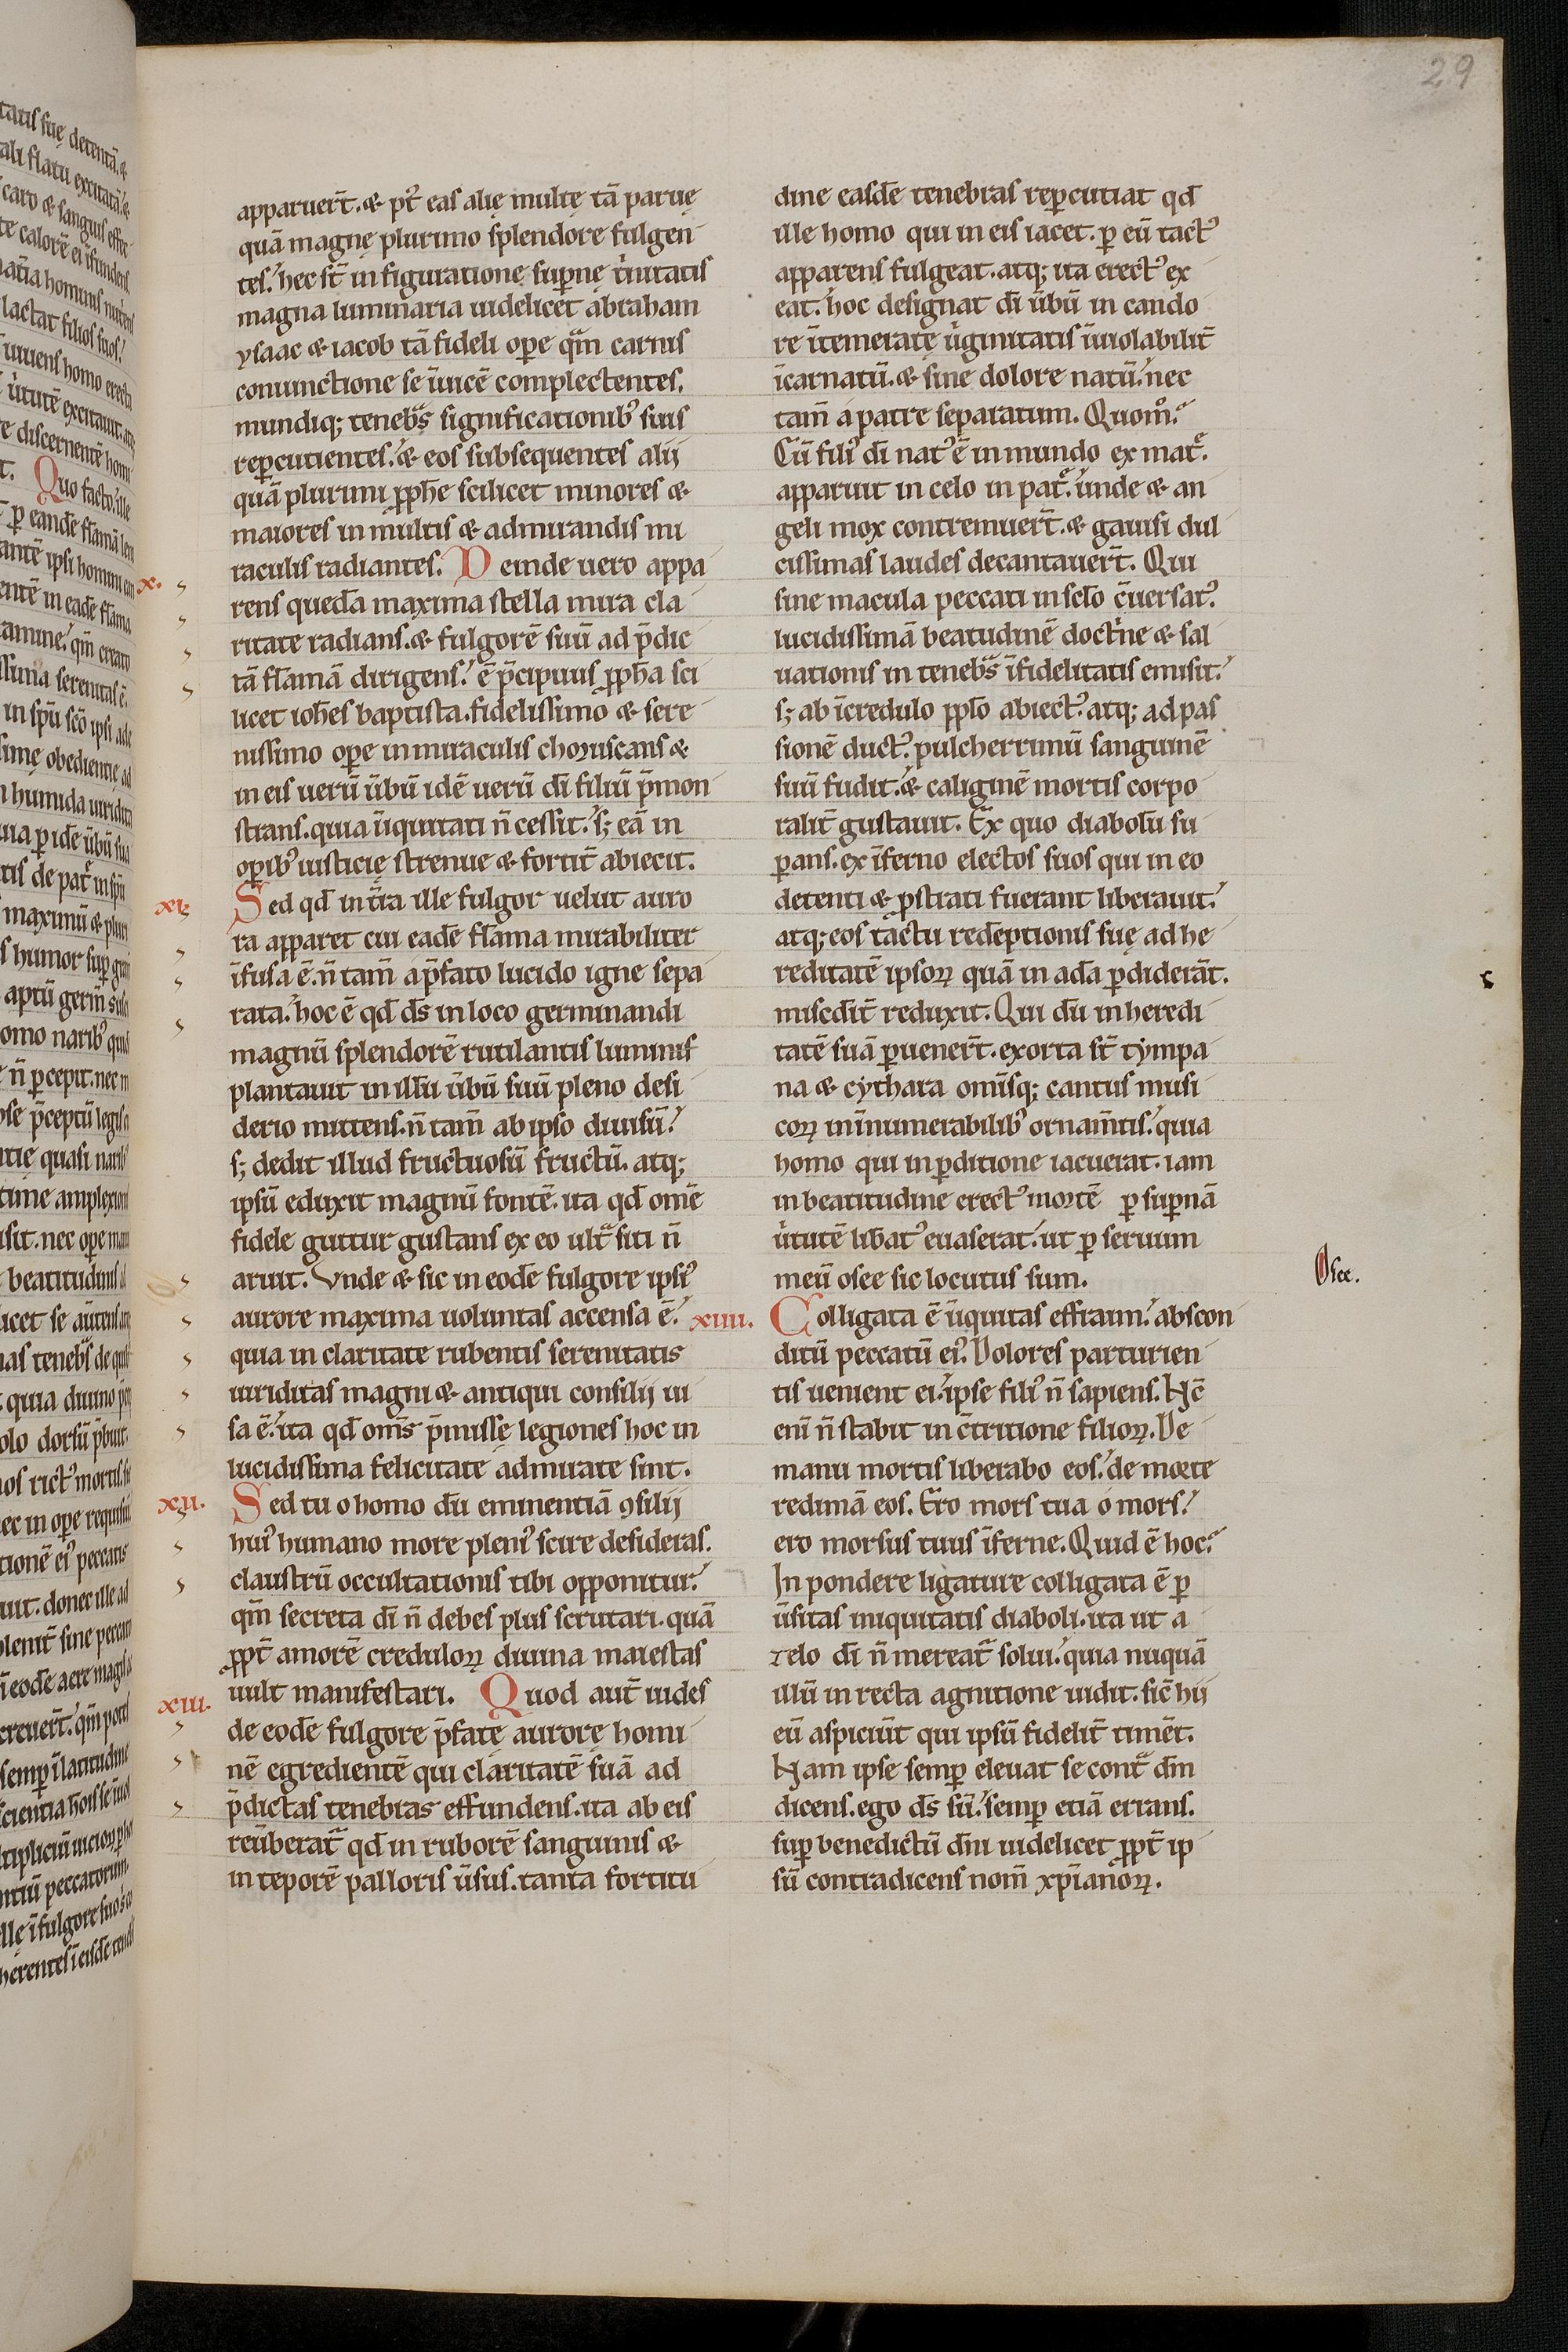 29
apparuer̄t. & pt̄ eas alię multę tā paruę
quā magnę plurimo splendore fulgen
tes. hec st̄ in figuratione supernę trinitatis
magna luminaria uidelicet abraham
ysaac & iacob tā fideli ope qm̄ carnis
coniunctione se īuicē complectentes.
mundiq; tenebˢ significationib' suis
ꝑcutientes. & eos subsequentes alij
quā plurimi ꝓphe scilicet minores &
maiores in multis & admirandis mi
raculis radiantes. Deinde uero appa
x.
rens quedā maxima stella mira cla
ritate radians. & fulgorē suū ad p̄dic
tā flāmā dirigens. ē p̄cipuus ꝓpha sci
licet ioh̄es baptista. fidelissimo & sere
nissimo ope in miraculis choruscans &
in eis uerū ūbū idē uerū dī filiū p̄mon
strans. quia īiquitati n̄ cessit. s; eā in
opib' iusticię strenue & fortit̄ abiecit.
xi.
Sed qd̄ in t̄ra ille fulgor uelut auro
ra apparet cui eadē flāma mirabiliter
īfusa ē. n̄ tam̄ a p̄fato lucido igne sepa
rata. hoc ē qd̄ ds̄ in loco germinandi
magnū splendorē rutilantis luminis
plantauit in illū ūbū suū pleno desi
derio mittens. n̄ tam̄ ab ipso diuisū.
s; dedit illud fructuosū fructū. atq;
ipsū eduxit magnū fontē. ita qd̄ omē
fidele guttur gustans ex eo ult̄ siti n̄
aruit. Vnde & sic in eodē fulgore ipsi'
aurore maxima uoluntas accensa ē.
quia in claritate rubentis serenitatis
uiriditas magni & antiqui consilij ui
sa ē. ita qd̄ oms̄ p̄misse legiones hoc in
lucidissima felicitate admirate sint.
xii.
Sed tu o homo dū eminentiā ꝯsilij
hui' humano more pleni' scire desideras.
claustrū occultationis tibi opponitur.
qm̄ secreta dī n̄ debes plus scrutari. quā
ꝓpt̄ amorē creduloꝝ diuina maiestas
uult manifestari. Quod aut̄ uides
xiii.
de eodē fulgore p̄fatę aurorę homi
nē egredientē qui claritatē suā ad
p̄dictas tenebras effundens. ita ab eis
reūberat̄ qd̄ in ruborē sanguinis &
in teporē palloris ūsus. tanta fortitu
dine easdē tenebras repcutiat qd̄
ille homo qui in eis iacet. ꝑ eū tact'
apparens fulgeat. atq; ita erect' ex
eat. hoc designat dī ūbū in cando
re ītemeratę uirginitatis īuiolabilit̄
īcarnatū. & sine dolore natū. nec
tam̄ a patre separatum. Quom°.
Cū fili' dī nat' ē in mundo ex mat̄.
apparuit in celo in pat̄. unde & an
geli mox contremuer̄t. & gauisi dul
cissimas laudes decantauer̄t. Qui
sine macula peccati in sc̄lo c̄uersat'.
lucidissimā beatudinē doctrine & sal
uationis in tenebˢ īfidelitatis emisit.
s; ab īcredulo ppl̄o abiect'. atq; ad pas
sionē duct'. pulcherrimū sanguinē
suū fudit. & caliginē mortis corpo
ralit̄ gustauit. Ex quo diabolū su
ꝑans. ex īferno electos suos qui in eo
detenti & ꝓstrati fuerant liberauit.
atq; eos tactu redēptionis suę ad he
reditatē ipsoꝝ quā in adā ꝑdiderāt.
miscd̄it̄ reduxit. Qui dū in heredi
tatē suā ꝑuener̄t. exorta st̄ tympa
na & cythara omīsq; cantus musi
coꝝ in īnumerabilib' ornam̄tis. quia
homo qui in ꝑditione iacuerat. iam
in beatitudine erect' mortē ꝑ supnā
uirtutē libat' euaserat. ut ꝑ seruum
meū osee sic locutus sum.
Osee.
xiiii.
Colligata ē īiquitas effraim. abscon
ditū peccatū ei'. Dolores parturien
tis uenient ei. ipse fili' n̄ sapiens. Nc̄
enī n̄ stabit in c̄tritione filioꝝ. De
manu mortis liberabo eos. de morte
redimā eos. Ero mors tua o mors.
ero morsus tuus īferne. Quid ē hoc.
In pondere ligature colligata ē ꝑ
ūsitas iniquitatis diaboli. ita ut a
zelo dī n̄ mereat̄ solui. quia nuquā
illū in recta agnitione uidit. sic̄ hij
eū aspiciūt qui ipsū fidelit̄ timēt.
Nam ipse semꝑ eleuat se cont̄ dm̄
dicens. ego ds̄ sū. semꝑ etiā errans.
suꝑ benedictū dn̄i uidelicet ꝓpt̄ ip
sū contradicens nom̄ xp̄ianoꝝ.